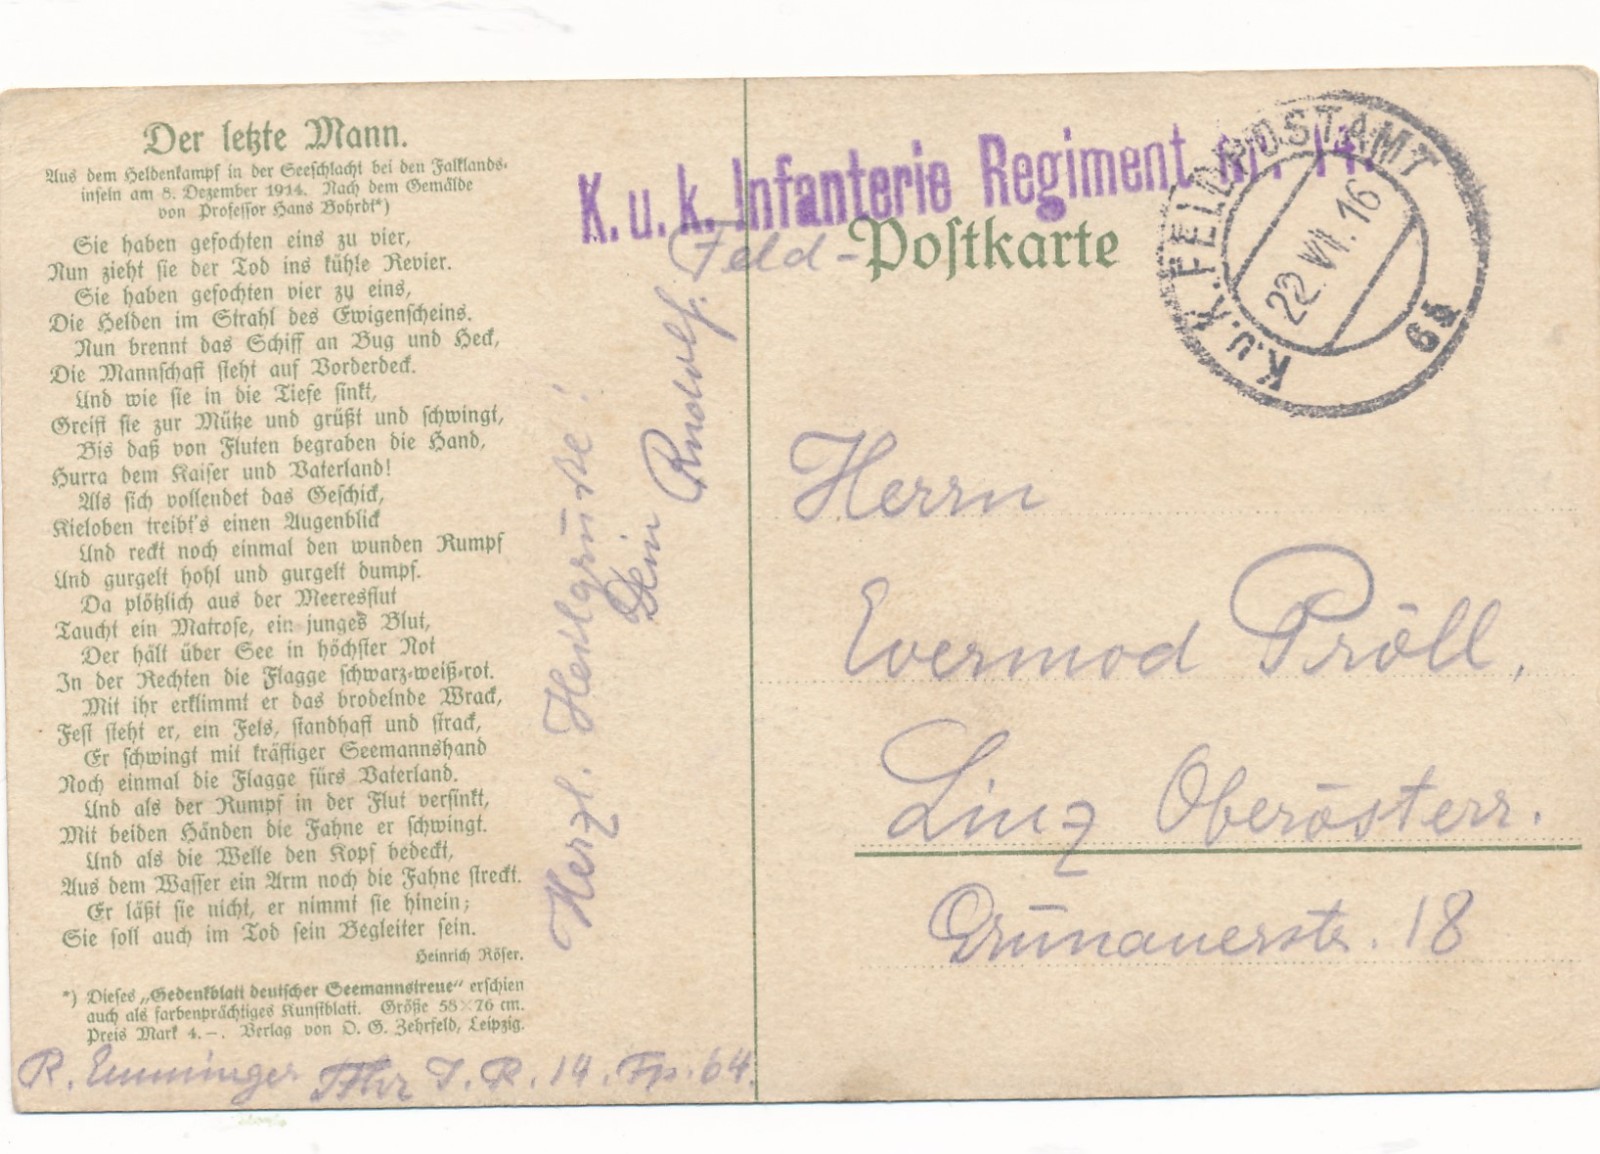 Der letzte Mann.
Aus dem Heldenkampf in der Seeschlacht bei den Falklands-
inseln am 8. Dezember 1914. Nach dem Gemälde
von Professor Hans Bohrdt*)
Sie haben gefochten eins zu vier,
Nun zieht sie der Tod ins kühle Revier.
Sie haben gefochten vier zu eins,
Die Helden im Strahl des Ewigenscheins.
Nun brennt das Schiff an Bug und Heck,
Die Mannschaft steht auf Vorderdeck.
Und wie sie in die Tiefe sinkt,
Greift sie zur Mütze und grüßt und schwingt,
Bis daß von Fluten begraben die Hand,
Hurra dem Kaiser und Vaterland!
Als sich vollendet das Geschick,
Kieloben treibt's einen Augenblick
Und reckt noch einmal den wunden Rumpf
Und gurgelt hohl und gurgelt dumpf.
Da plötzlich aus der Meeresflut
Taucht ein Matrose, ein junges Blut,
Der hält über See in höchster Not
In der Rechten die Flagge schwarz-weiß-rot.
Mit ihr erklimmt er das brodelnde Wrack,
Fest steht er, ein Fels, standhaft und strack,
Er schwingt mit kräftiger Seemannshand
Noch einmal die Flagge fürs Vaterland.
Und als der Rumpf in der Flut versinkt,
Mit beiden Händen die Fahne er schwingt.
Und als die Welle den Kopf bedeckt,
Aus dem Wasser ein Arm noch die Fahne streckt.
Er läßt sie nicht, er nimmt sie hinein;
Sie soll auch im Tod sein Begleiter sein.
Heinrich Röser.
*) Dieses „Gedenkblatt deutscher Seemannstreue“ erschien
auch als farbenprächtiges Kunstblatt. Größe 58×76 cm.
Preis Mark 4.–. Verlag von O. G. Zehrfeld, Leipzig.
R. Emminger Fhr I. R. 14. Fp. 64.
Herzl. Heilgrüße!
Dein Rudolf.
K. u. k. Infanterie Regiment Nr. 14.
Feld-Postkarte
K.U.K. FELDPOSTAMT
22. VII. 16
64
Herrn
Evermod Pröll,
Linz Oberösterr.
Grünauerstr. 18